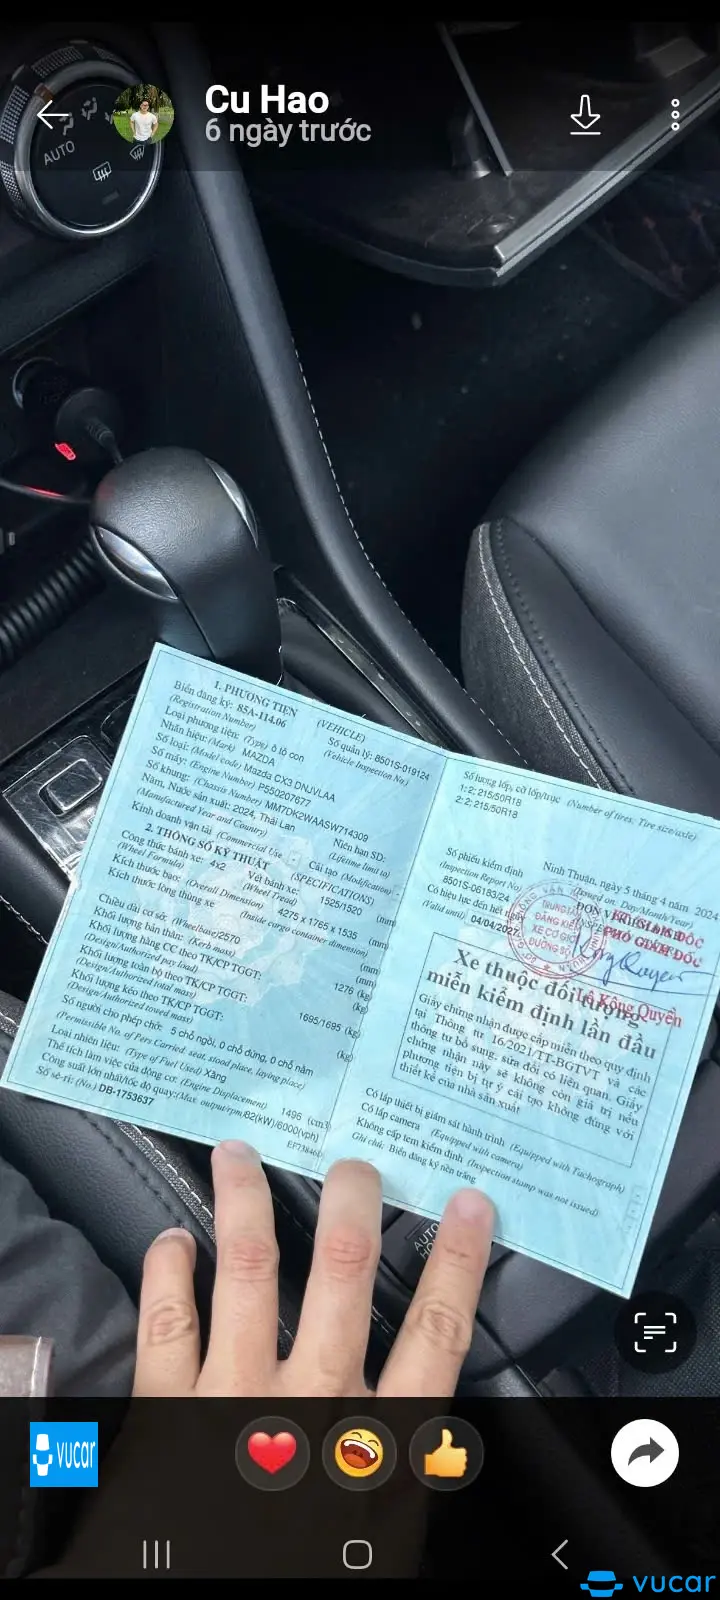 Cu Hao
6 ngày trước
AUTO
1. PHƯƠNG TIỆN (VEHICLE)
Biển đăng ký: 85A-114.06 Số quản lý: 8501S-019124
(Registration Number) (Vehicle Inspection No)
Loại phương tiện: (Type) ô tô con
Nhãn hiệu: (Mark) MAZDA
Số loại: (Model code) Mazda CX3 DNJVLAA
Số máy: (Engine Number) P550207677
Số khung: (Chassis Number) MM7DK2WAASW714309
Năm, Nước sản xuất: 2024, Thái Lan Niên hạn SD:
(Manufactured Year and Country) (Lifetime limit to)
Kinh doanh vận tải (Commercial Use) - Cải tạo (Modification) -
2. THÔNG SỐ KỸ THUẬT (SPECIFICATIONS)
Công thức bánh xe: 4x2 Vết bánh xe: 1525/1520 (mm)
(Wheel Formula) (Wheel Tread)
Kích thước bao: (Overall Dimension) 4275 x 1765 x 1535 (mm)
Kích thước lòng thùng xe (Inside cargo container dimension)
(mm)
Chiều dài cơ sở: (Wheelbase) 2570 (mm)
Khối lượng bản thân: (Kerb mass) 1276 (kg)
Khối lượng hàng CC theo TK/CP TGGT: (kg)
(Design/Authorized pay load)
Khối lượng toàn bộ theo TK/CP TGGT: 1695/1695 (kg)
(Design/Authorized total mass)
Khối lượng kéo theo TK/CP TGGT: (kg)
(Design/Authorized towed mass)
Số người cho phép chở: 5 chỗ ngồi, 0 chỗ đứng, 0 chỗ nằm
(Permissible No. of Pers Carried: seat, stood place, laying place)
Loại nhiên liệu: (Type of Fuel Used) Xăng
Thể tích làm việc của động cơ: (Engine Displacement) 1496 (cm3)
Công suất lớn nhất/tốc độ quay: (Max. output/rpm) 82(kW)/6000(vph)
Số sê-ri: (No.) DB-1753637
Số lượng lốp, cỡ lốp/trục (Number of tires; Tire size/axle)
1: 2; 215/50R18
2: 2; 215/50R18
Số phiếu kiểm định
(Inspection Report No)
8501S-06183/24
Có hiệu lực đến hết ngày
(Valid until) 04/04/2027
Ninh Thuận, ngày 5 tháng 4 năm 2024
(Issued on: Day/Month/Year)
PHÓ GIÁM ĐỐC
TRUNG TÂM
ĐĂNG KIỂM
XE CƠ GIỚI
ĐƯỜNG BỘ
Lê Kông Quyền
Xe thuộc đối tượng
miễn kiểm định lần đầu
Giấy chứng nhận được cấp miễn theo quy định
tại Thông tư 16/2021/TT-BGTVT và các
thông tư bổ sung, sửa đổi có liên quan. Giấy
chứng nhận này sẽ không còn giá trị nếu
phương tiện bị tự ý cải tạo không đúng với
thiết kế của nhà sản xuất
Có lắp thiết bị giám sát hành trình (Equipped with Tachograph)
Có lắp camera (Equipped with camera)
Không cấp tem kiểm định (Inspection stamp was not issued)
Ghi chú: Biển đăng ký nền trắng
vucar
vucar